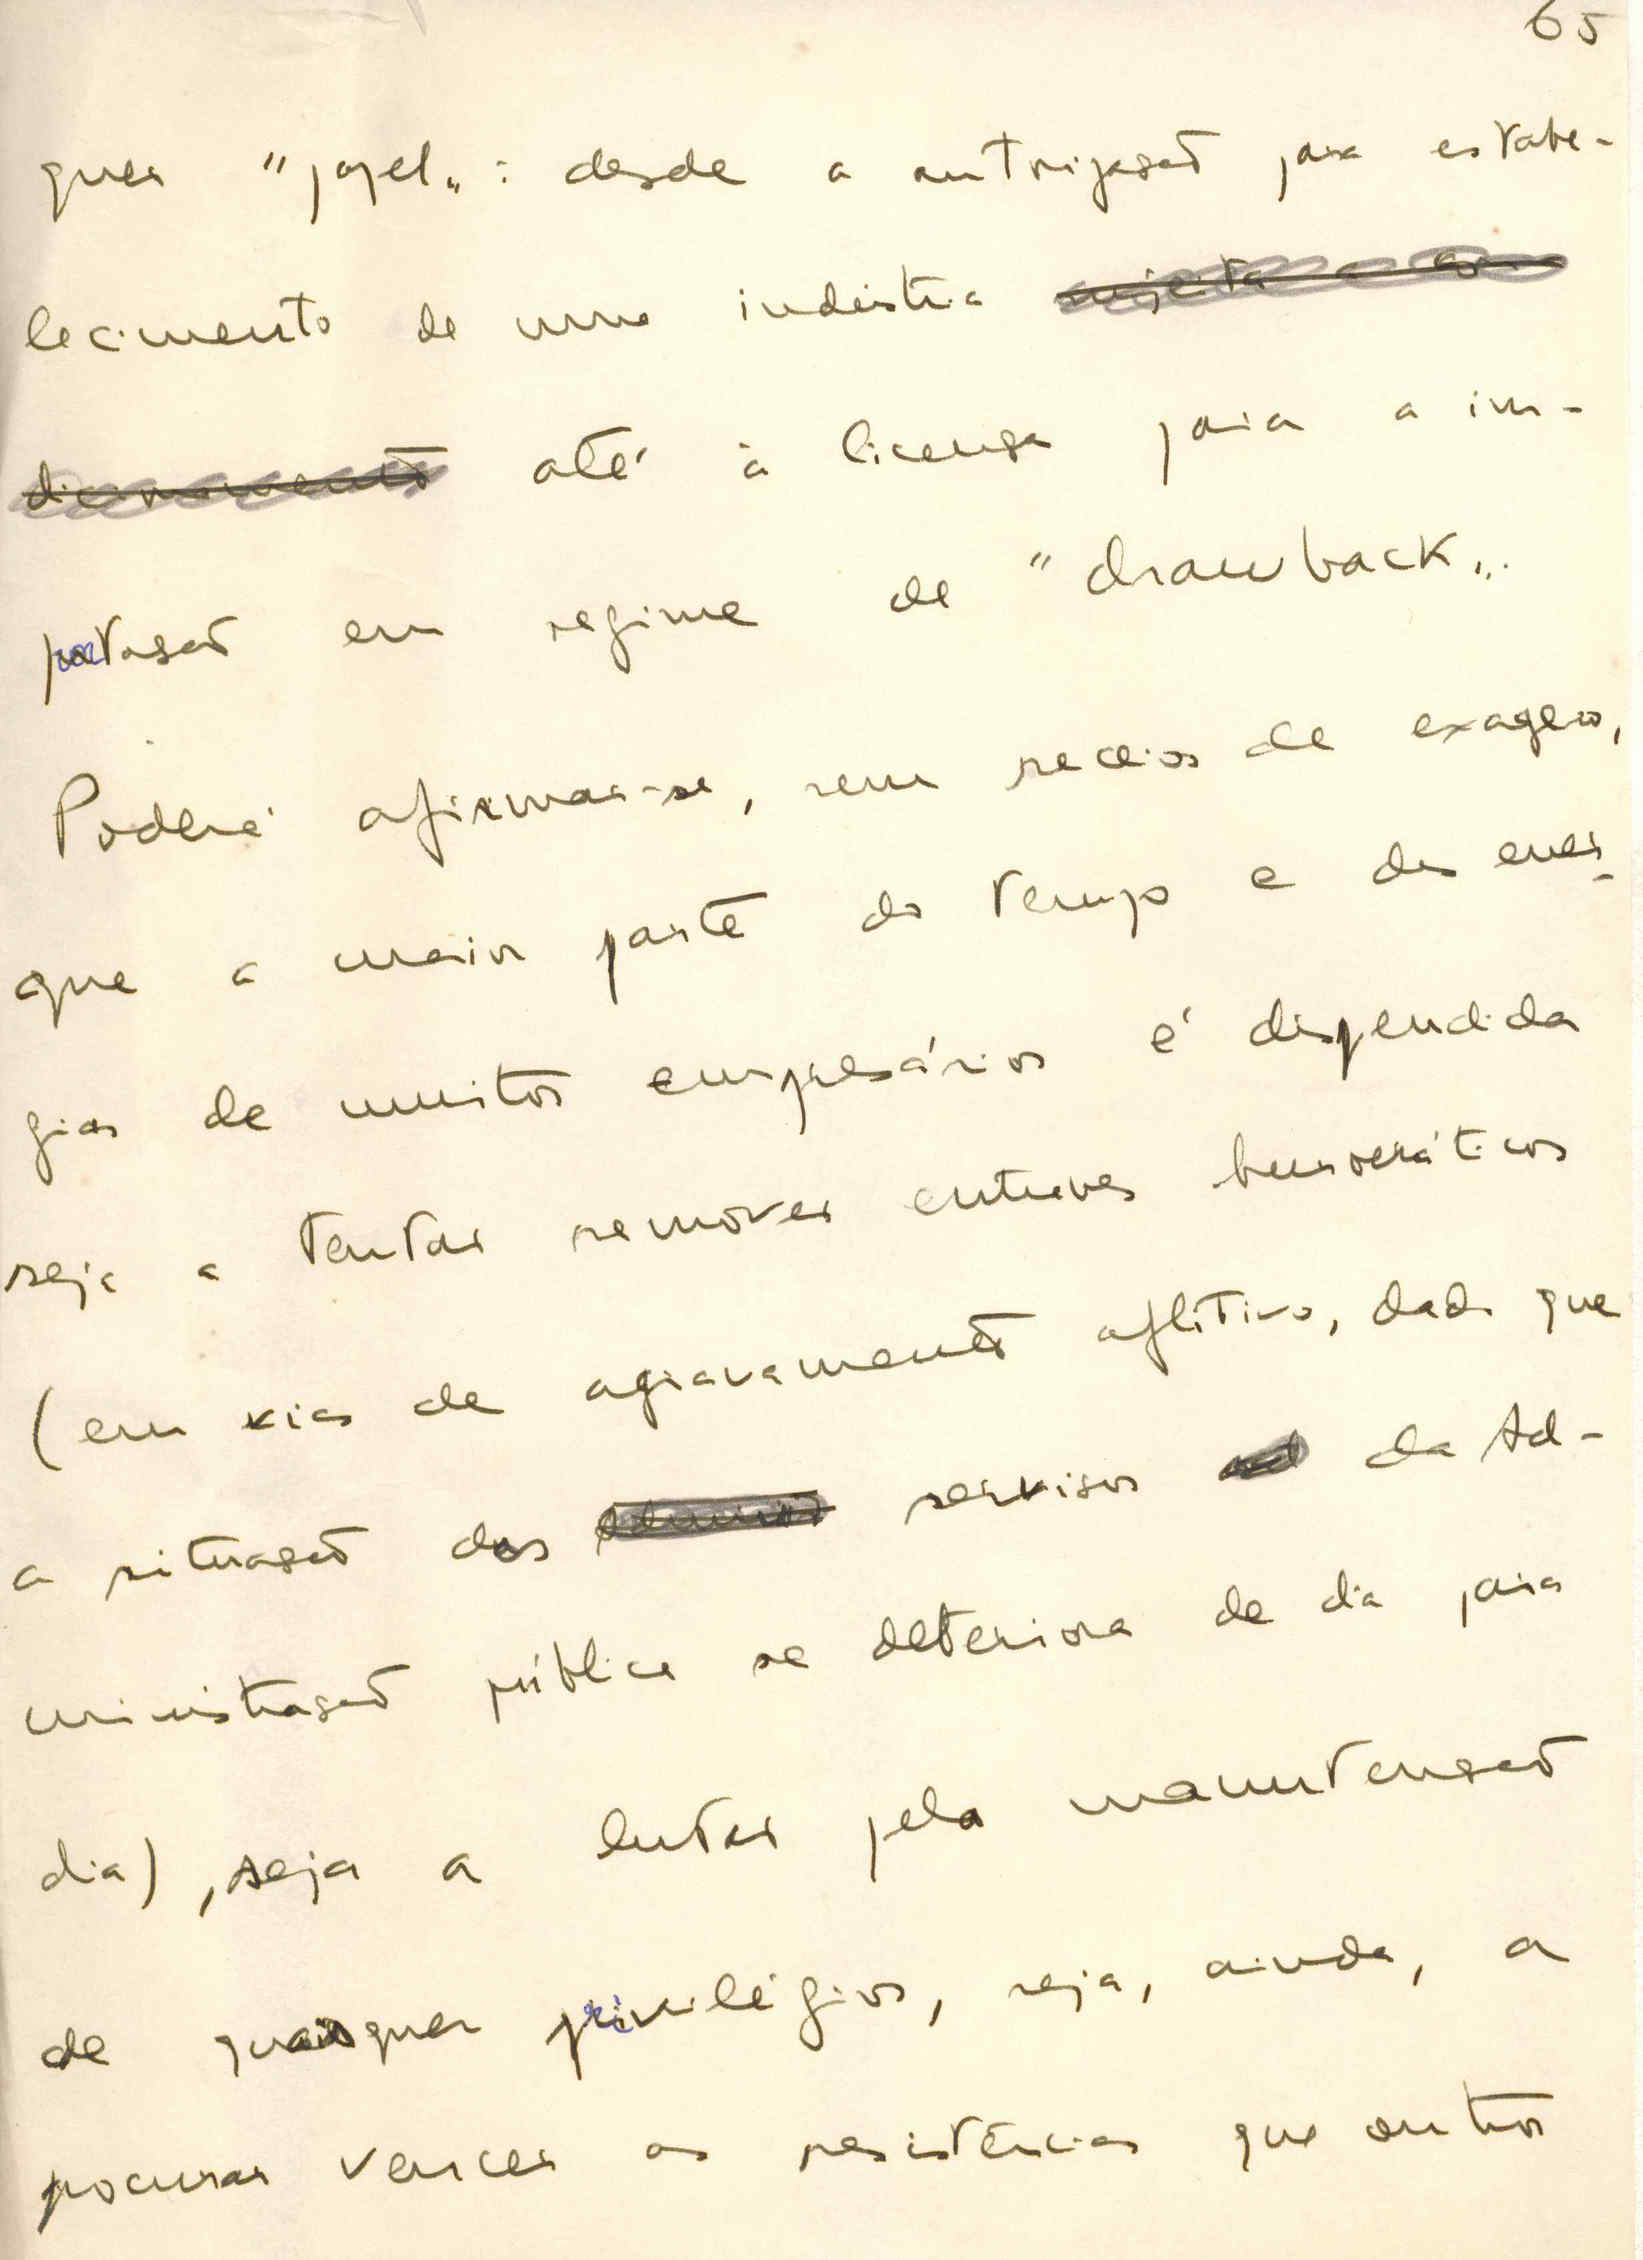 65
quer "papel": desde a autorização para estabe-
lecimento de uma indústria
até à licença para a im-
portação em regime de "drawback".
Poderá afirmar-se, sem receios de exagero,
que a maior parte do tempo e das ener-
gias de muitos empresários é dispendida
seja a tentar remover entraves burocráticos
(em vias de agravamento aflitivo, dado que
a situação dos serviços da Ad-
ministração pública se deteriora de dia para
dia), seja a lutar pela manutenção
de quaisquer privilégios, seja, ainda, a
procurar vencer as resistências que outros